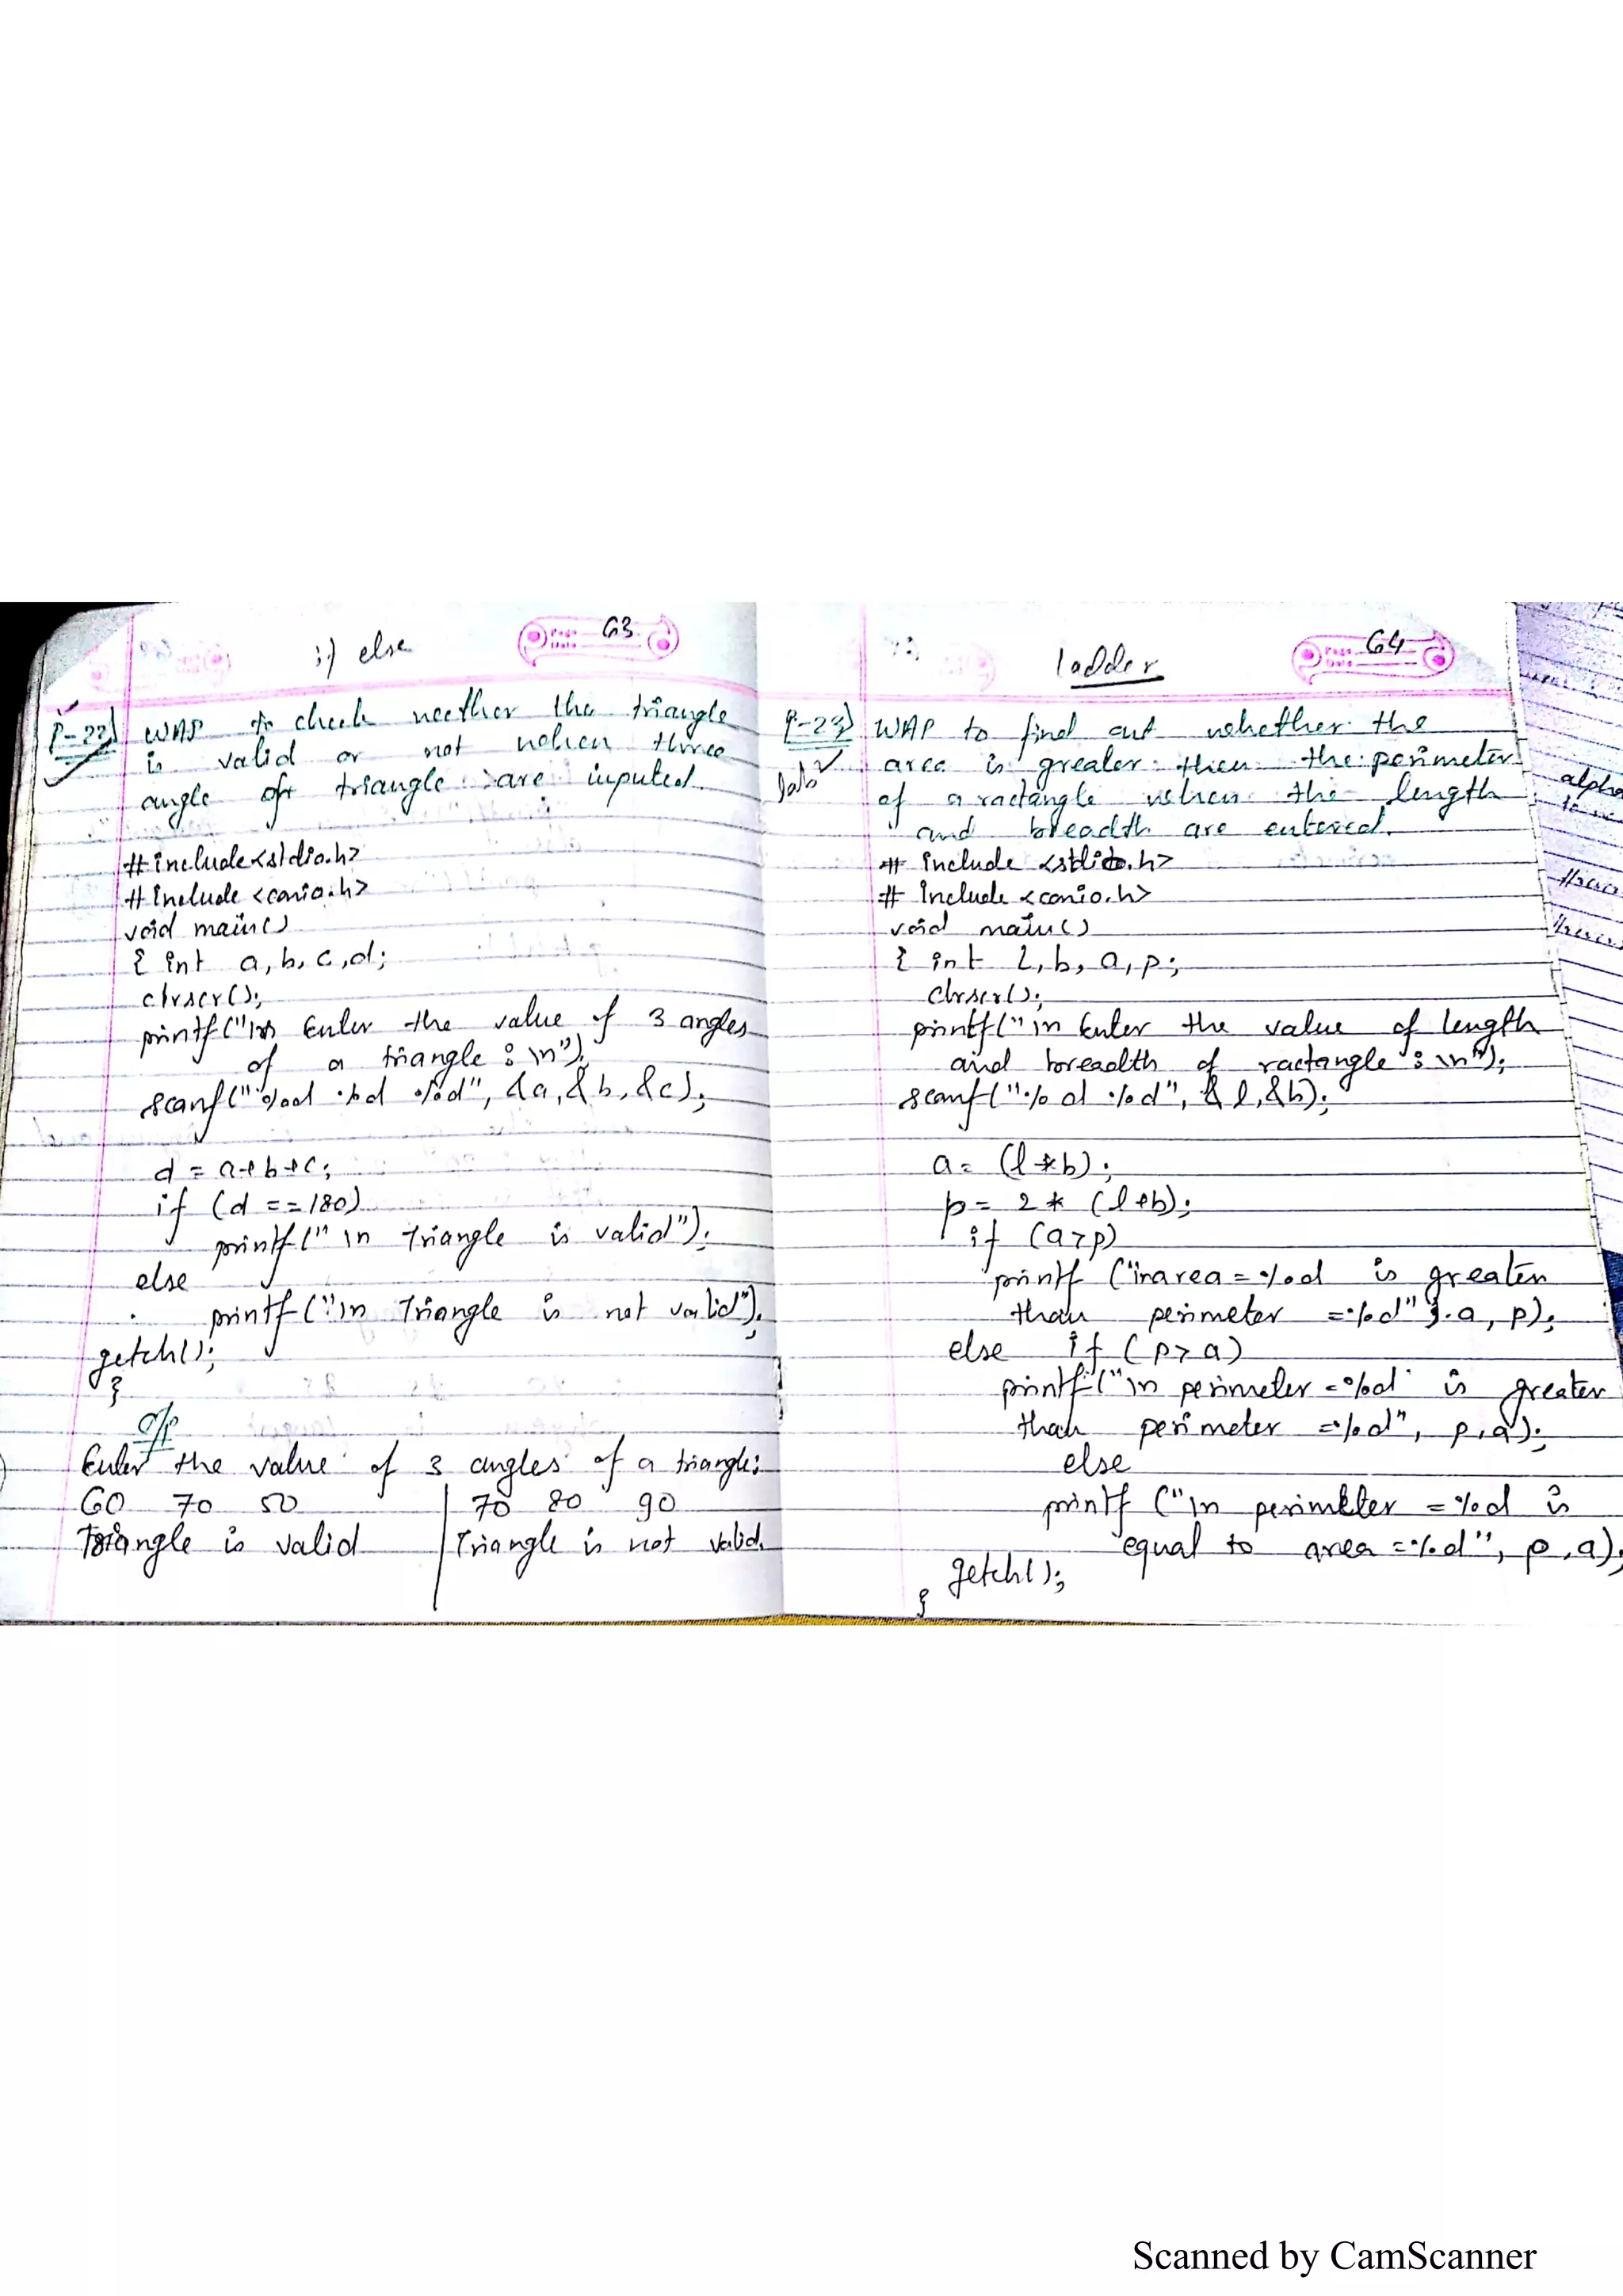 if else
Page 63
Date
P-22) WAP to check wether the triangle
is valid or not when three
angle of triangle are inputed.
#include<stdio.h>
#include <conio.h>
void main()
{ int a, b, c, d;
clrscr();
printf("\n Enter the value of 3 angles
of a triangle : \n");
scanf("%d %d %d", &a, &b, &c);
d = a+b+c;
if (d ==180)
printf("\n Triangle is valid");
else
printf("\n Triangle is not valid");
getch();
}
O/P
Enter the value of 3 angles of a triangle:
60 70 50 | 70 80 90
Triangle is valid | Triangle is not valid.
ladder
Page 64
Date
P-23) WAP to find out whether the
area is greater then the perimeter
of a ractangle when the length
and breadth are entered.
# include <stdio.h>
# include <conio.h>
void main()
{ int l, b, a, p;
clrscr();
printf("\n Enter the value of length
and breadth of ractangle : \n");
scanf("%d %d", &l, &b);
a= (l*b);
p= 2 * (l+b);
if (a>p)
printf ("\narea = %d is greater
than perimeter =%d", a, p);
else if (p>a)
printf("\n perimeter =%d is greater
than perimeter =%d", p, a);
else
printf ("\n perimeter = %d is
equal to area =%d", p, a);
getch();
}
Scanned by CamScanner